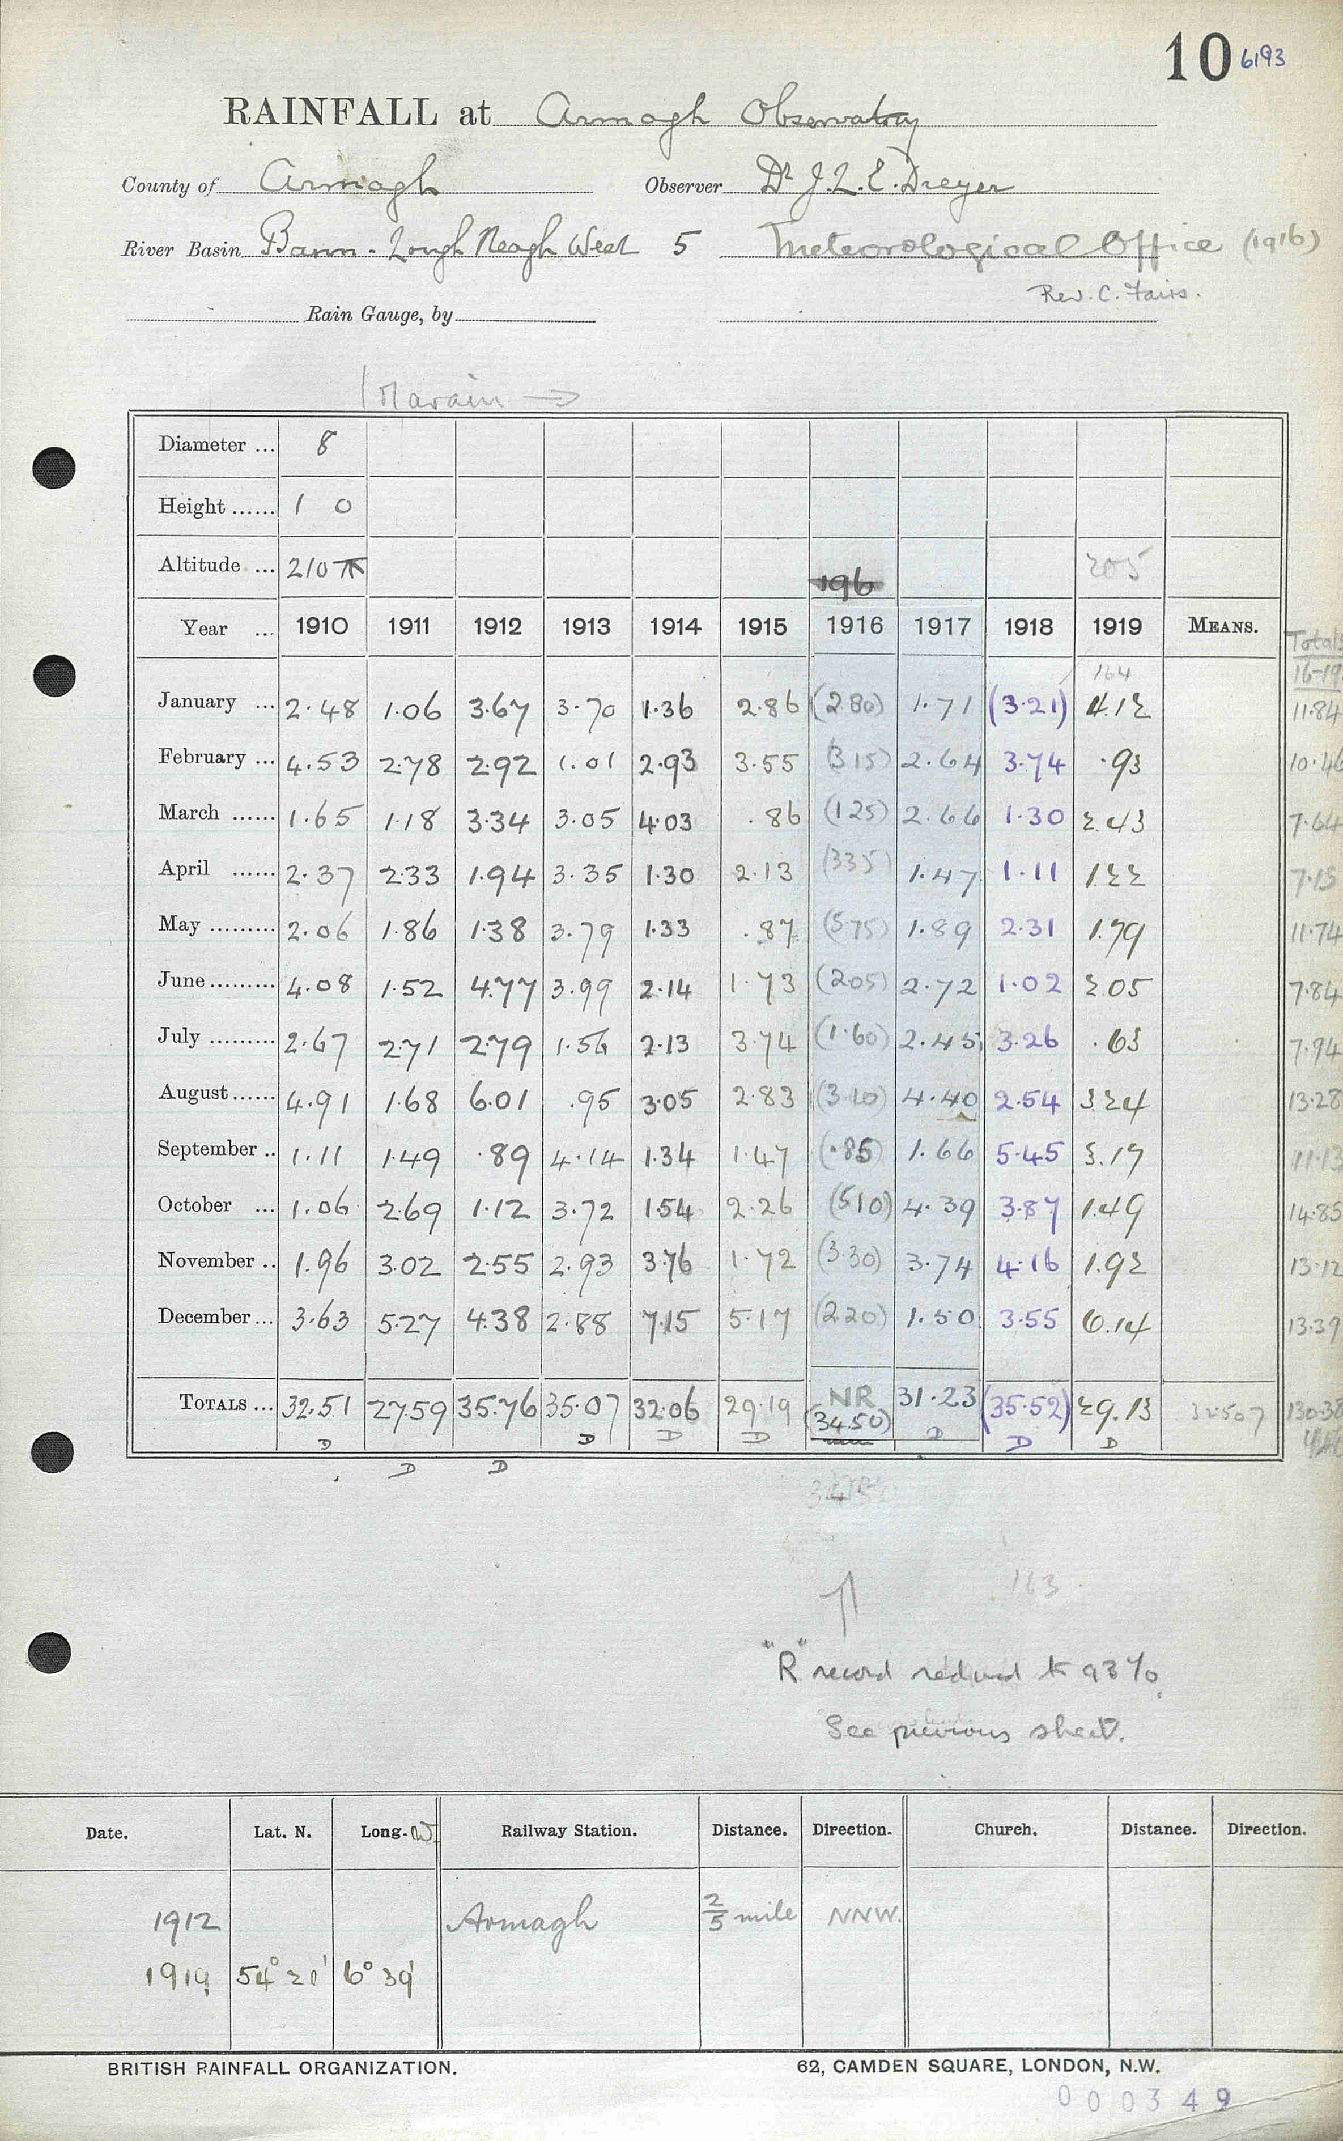 10 6193
RAINFALL at Armagh Observatory
County of Armagh Observer Dr J. L. E. Dreyer
River Basin Bann - Lough Neagh West 5 Meteorological Office (1916)
Rev. C. Faris.
Rain Gauge, by
Diameter ... 8
Height ...... 1 0
Altitude ... 210 205
196
Year ... 1910 1911 1912 1913 1914 1915 1916 1917 1918 1919 MEANS. Totals
164 16-19
January ... 2.48 1.06 3.67 3.70 1.36 2.86 (2.80) 1.71 (3.21) 4.12 11.84
February ... 4.53 2.78 2.92 1.01 2.93 3.55 (3.15) 2.64 3.74 .93 10.46
March ...... 1.65 1.18 3.34 3.05 4.03 .86 (1.25) 2.66 1.30 2.43 7.64
April ...... 2.37 2.33 1.94 3.35 1.30 2.13 (3.35) 1.47 1.11 1.22 7.15
May ......... 2.06 1.86 1.38 3.79 1.33 .87 (5.75) 1.89 2.31 1.79 11.74
June ......... 4.08 1.52 4.77 3.99 2.14 1.73 (2.05) 2.72 1.02 2.05 7.84
July ......... 2.67 2.71 2.79 1.56 2.13 3.74 (1.60) 2.45 3.26 .63 7.94
August ...... 4.91 1.68 6.01 .95 3.05 2.83 (3.10) 4.40 2.54 3.24 13.28
September .. 1.11 1.49 .89 4.14 1.34 1.47 (.85) 1.66 5.45 3.17 11.13
October ... 1.06 2.69 1.12 3.72 1.54 2.26 (5.10) 4.39 3.87 1.49 14.85
November .. 1.96 3.02 2.55 2.93 3.76 1.72 (3.30) 3.74 4.16 1.92 13.12
December ... 3.63 5.27 4.38 2.88 7.15 5.17 (2.20) 1.50 3.55 6.14 13.39
TOTALS ... 32.51 27.59 35.76 35.07 32.06 29.19 NR (34.50) 31.23 (35.52) 29.13 32.507 130.38
D D D D D D D D
D D
163
"R" record reduced to 93%.
See previous sheet.
Date. Lat. N. Long. W Railway Station. Distance. Direction. Church. Distance. Direction.
1912 Armagh 2/5 mile NNW.
1919 54° 21' 6° 39'
BRITISH RAINFALL ORGANIZATION. 62, CAMDEN SQUARE, LONDON, N.W.
000349